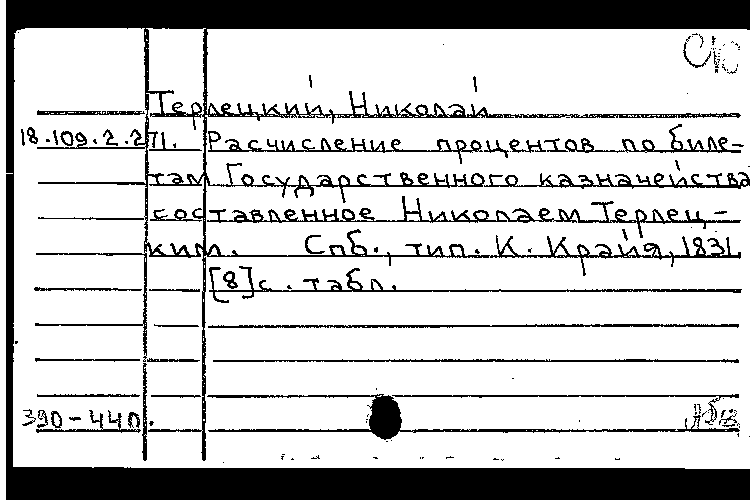 Терлецкий, Николай
18.109.2.271. Расчисление процентов по биле-
там Государственного казначейства
составленное Николаем Терлец-
ким. Спб., тип. К. Крайя, 1831.
[8]с. табл.
390-440.